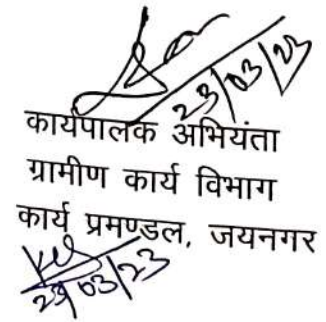 23/03/23
कार्यपालक अभियंता
ग्रामीण कार्य विभाग
कार्य प्रमण्डल, जयनगर
23/03/23